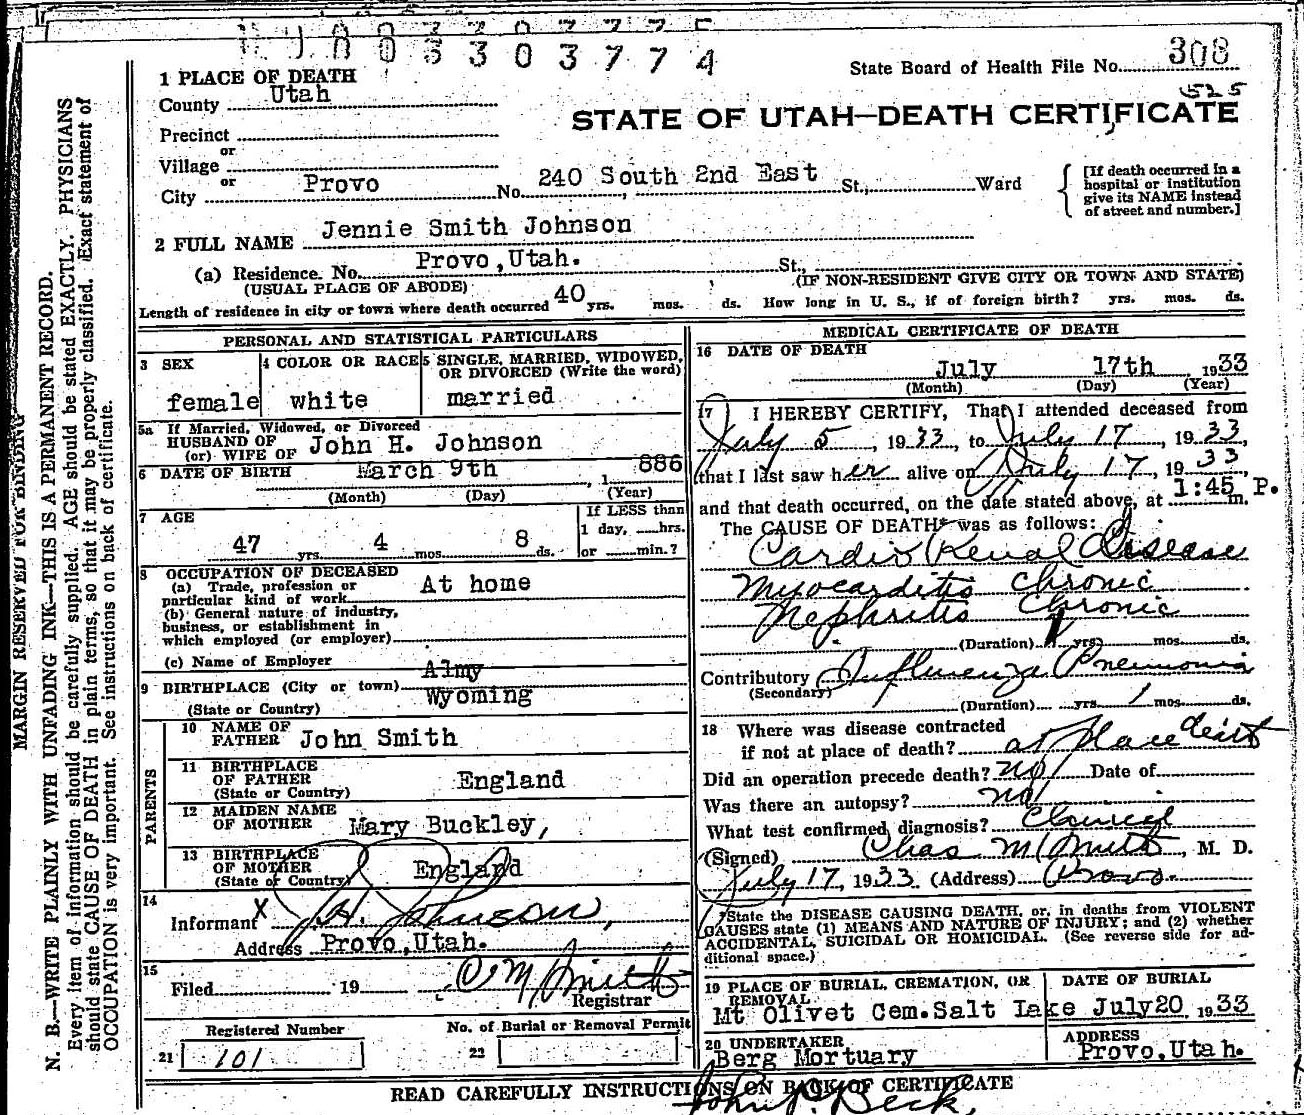 3 0 3 7 7 4
State Board of Health File No. 308
525
1 PLACE OF DEATH
County Utah
STATE OF UTAH—DEATH CERTIFICATE
Precinct
or
Village
or
City Provo No. 240 South 2nd East St., Ward
[If death occurred in a hospital or institution give its NAME instead of street and number.]
2 FULL NAME Jennie Smith Johnson
(a) Residence. No. Provo, Utah. St.,
(USUAL PLACE OF ABODE) (IF NON-RESIDENT GIVE CITY OR TOWN AND STATE)
Length of residence in city or town where death occurred 40 yrs. mos. ds. How long in U. S., if of foreign birth? yrs. mos. ds.
PERSONAL AND STATISTICAL PARTICULARS
3 SEX
female
4 COLOR OR RACE
white
5 SINGLE, MARRIED, WIDOWED,
OR DIVORCED (Write the word)
married
5a If Married, Widowed, or Divorced
HUSBAND OF
(or) WIFE OF John H. Johnson
6 DATE OF BIRTH March 9th, 1886
(Month) (Day) (Year)
7 AGE
47 yrs. 4 mos. 8 ds.
If LESS than
1 day, hrs.
or min.?
8 OCCUPATION OF DECEASED
(a) Trade, profession or
particular kind of work At home
(b) General nature of industry,
business, or establishment in
which employed (or employer)
(c) Name of Employer
9 BIRTHPLACE (City or town) Almy
(State or Country) Wyoming
PARENTS
10 NAME OF
FATHER John Smith
11 BIRTHPLACE
OF FATHER
(State or Country) England
12 MAIDEN NAME
OF MOTHER Mary Buckley,
13 BIRTHPLACE
OF MOTHER
(State or Country) England
14
Informant X J. H. Johnson,
Address Provo, Utah.
15
Filed 19
Registrar
Registered Number
21 101
No. of Burial or Removal Permit
22
MEDICAL CERTIFICATE OF DEATH
16 DATE OF DEATH
July 17th 1933
(Month) (Day) (Year)
17 I HEREBY CERTIFY, That I attended deceased from
July 5, 1933, to July 17, 1933,
that I last saw her alive on July 17, 1933,
and that death occurred, on the date stated above, at 1:45 P. m.
The CAUSE OF DEATH* was as follows:
Cardio Renal Disease
Myocarditis Chronic
Nephritis Chronic
(Duration) yrs. mos. ds.
Contributory Influenza Pneumonia
(Secondary)
(Duration) yrs. 1 mos. ds.
18 Where was disease contracted
if not at place of death? at place
Did an operation precede death? no Date of
Was there an autopsy? no
What test confirmed diagnosis? Clinical
(Signed) Chas M Smith, M. D.
July 17, 1933 (Address) Provo
*State the DISEASE CAUSING DEATH, or, in deaths from VIOLENT
CAUSES state (1) MEANS AND NATURE OF INJURY; and (2) whether
ACCIDENTAL, SUICIDAL OR HOMICIDAL. (See reverse side for ad-
ditional space.)
19 PLACE OF BURIAL, CREMATION, OR
REMOVAL
Mt Olivet Cem. Salt Lake
DATE OF BURIAL
July 20, 1933
20 UNDERTAKER
Berg Mortuary
ADDRESS
Provo, Utah.
READ CAREFULLY INSTRUCTIONS ON BACK OF CERTIFICATE
Beck,
MARGIN RESERVED FOR BINDING
N. B.—WRITE PLAINLY WITH UNFADING INK—THIS IS A PERMANENT RECORD.
Every item of information should be carefully supplied. AGE should be stated EXACTLY. PHYSICIANS
should state CAUSE OF DEATH in plain terms, so that it may be properly classified. Exact statement of
OCCUPATION is very important. See instructions on back of certificate.